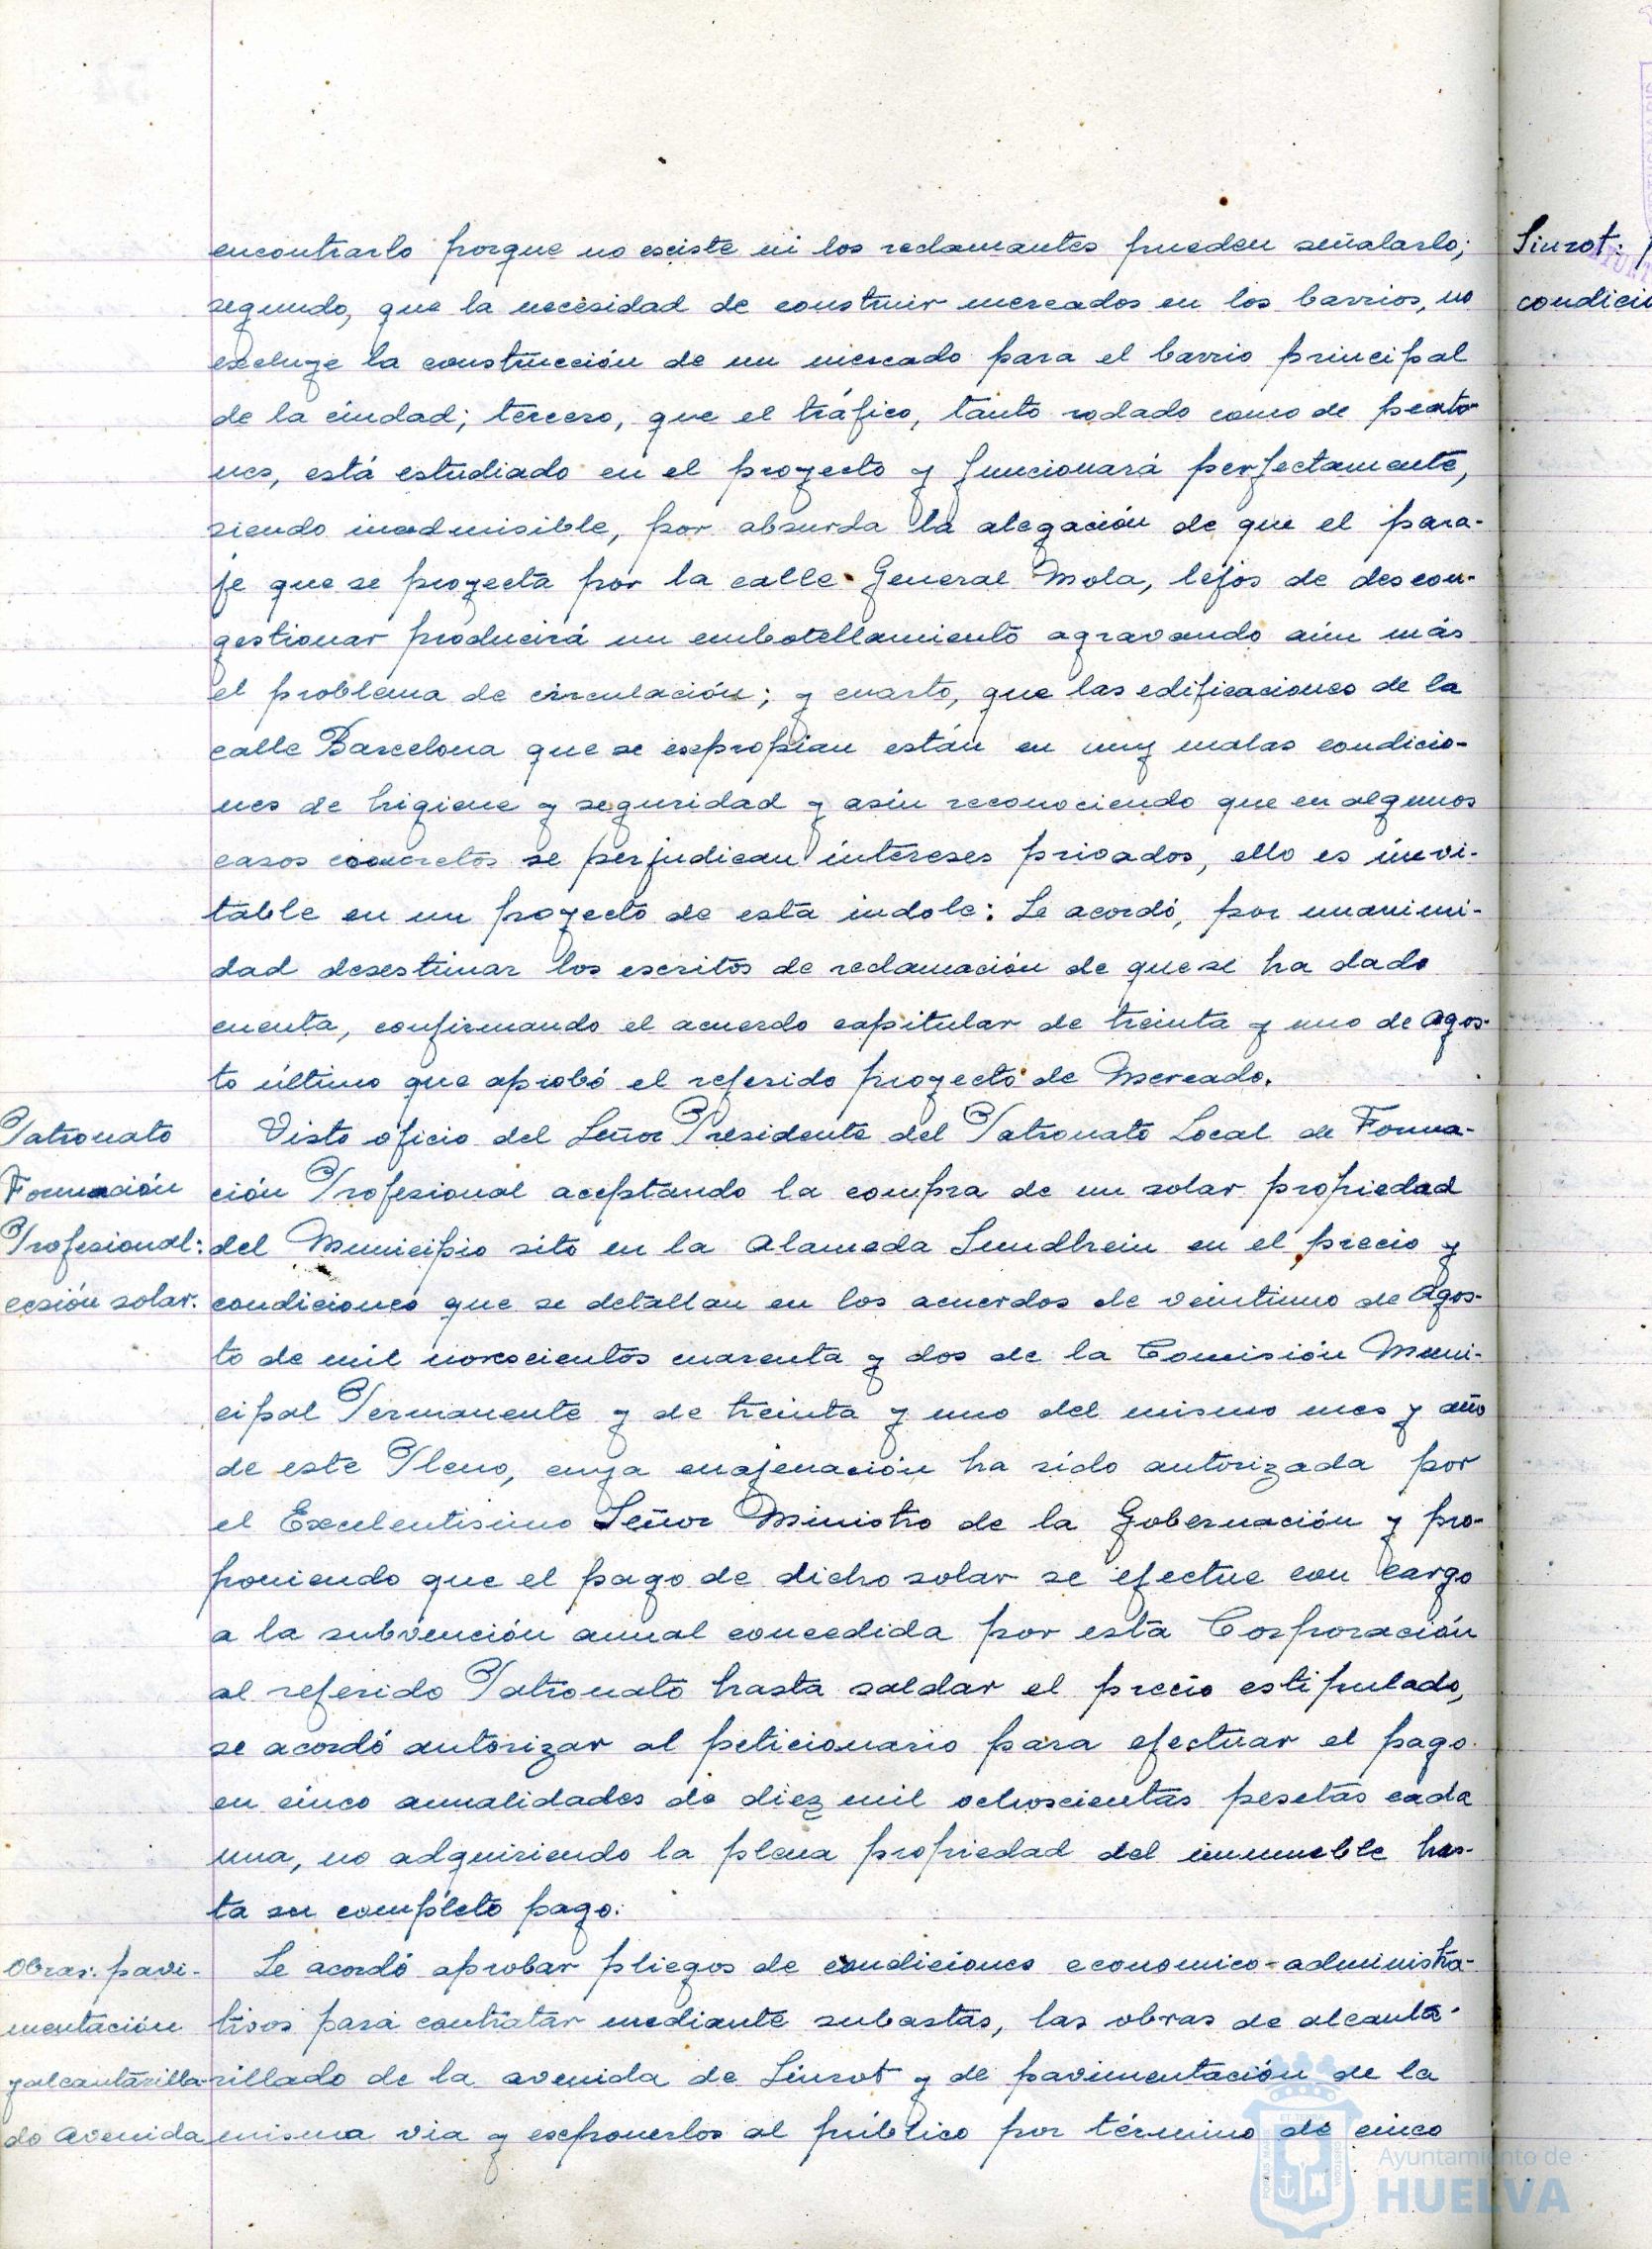 encontrarlo porque no existe ni los reclamantes pueden señalarlo;
segundo, que la necesidad de construir mercados en los barrios, no
excluye la construcción de un mercado para el barrio principal
de la ciudad; tercero, que el tráfico, tanto rodado como de peato-
nes, está estudiado en el proyecto y funcionará perfectamente,
siendo inadmisible, por absurda la alegación de que el para-
je que se proyecta por la calle General Mola, lejos de descon-
gestionar producirá un embotellamiento agravando aún más
el problema de circulación; y cuarto, que las edificaciones de la
calle Barcelona que se expropian están en muy malas condicio-
nes de higiene y seguridad y aún reconociendo que en algunos
casos concretos se perjudican intereses privados, ello es inevi-
table en un proyecto de esta indole: Se acordó, por unanimi-
dad desestimar los escritos de reclamación de que se ha dado
cuenta, confirmando el acuerdo capitular de treinta y uno de Agos-
to último que aprobó el referido proyecto de Mercado.
Patronato
Formación
Profesional:
cesión solar.
Visto oficio del Señor Presidente del Patronato Local de Forma-
ción Profesional aceptando la compra de un solar propiedad
del Municipio sito en la Alameda Sundhein en el precio y
condiciones que se detallan en los acuerdos de veintiuno de Agos-
to de mil novecientos cuarenta y dos de la Comisión Muni-
cipal Permanente y de treinta y uno del mismo mes y año
de este Pleno, cuya enajenación ha sido autorizada por
el Excelentisimo Señor Ministro de la Gobernación y pro-
poniendo que el pago de dicho solar se efectue con cargo
a la subvención anual concedida por esta Corporación
al referido Patronato hasta saldar el precio estipulado,
se acordó autorizar al peticionario para efectuar el pago
en cinco anualidades de diez mil ochoscientas pesetas cada
una, no adquiriendo la plena propiedad del inmueble has-
ta su completo pago.
Obras: pavi-
mentación
y alcantarilla-
do Avenida
Se acordó aprobar pliegos de condiciones economico-administra-
tivos para contratar mediante subastas, las obras de alcanta-
rillado de la avenida de Siurot y de pavimentación de la
misma via y exponerlos al público por término de cinco
Siurot:
condicio
Ayuntamiento de
HUELVA